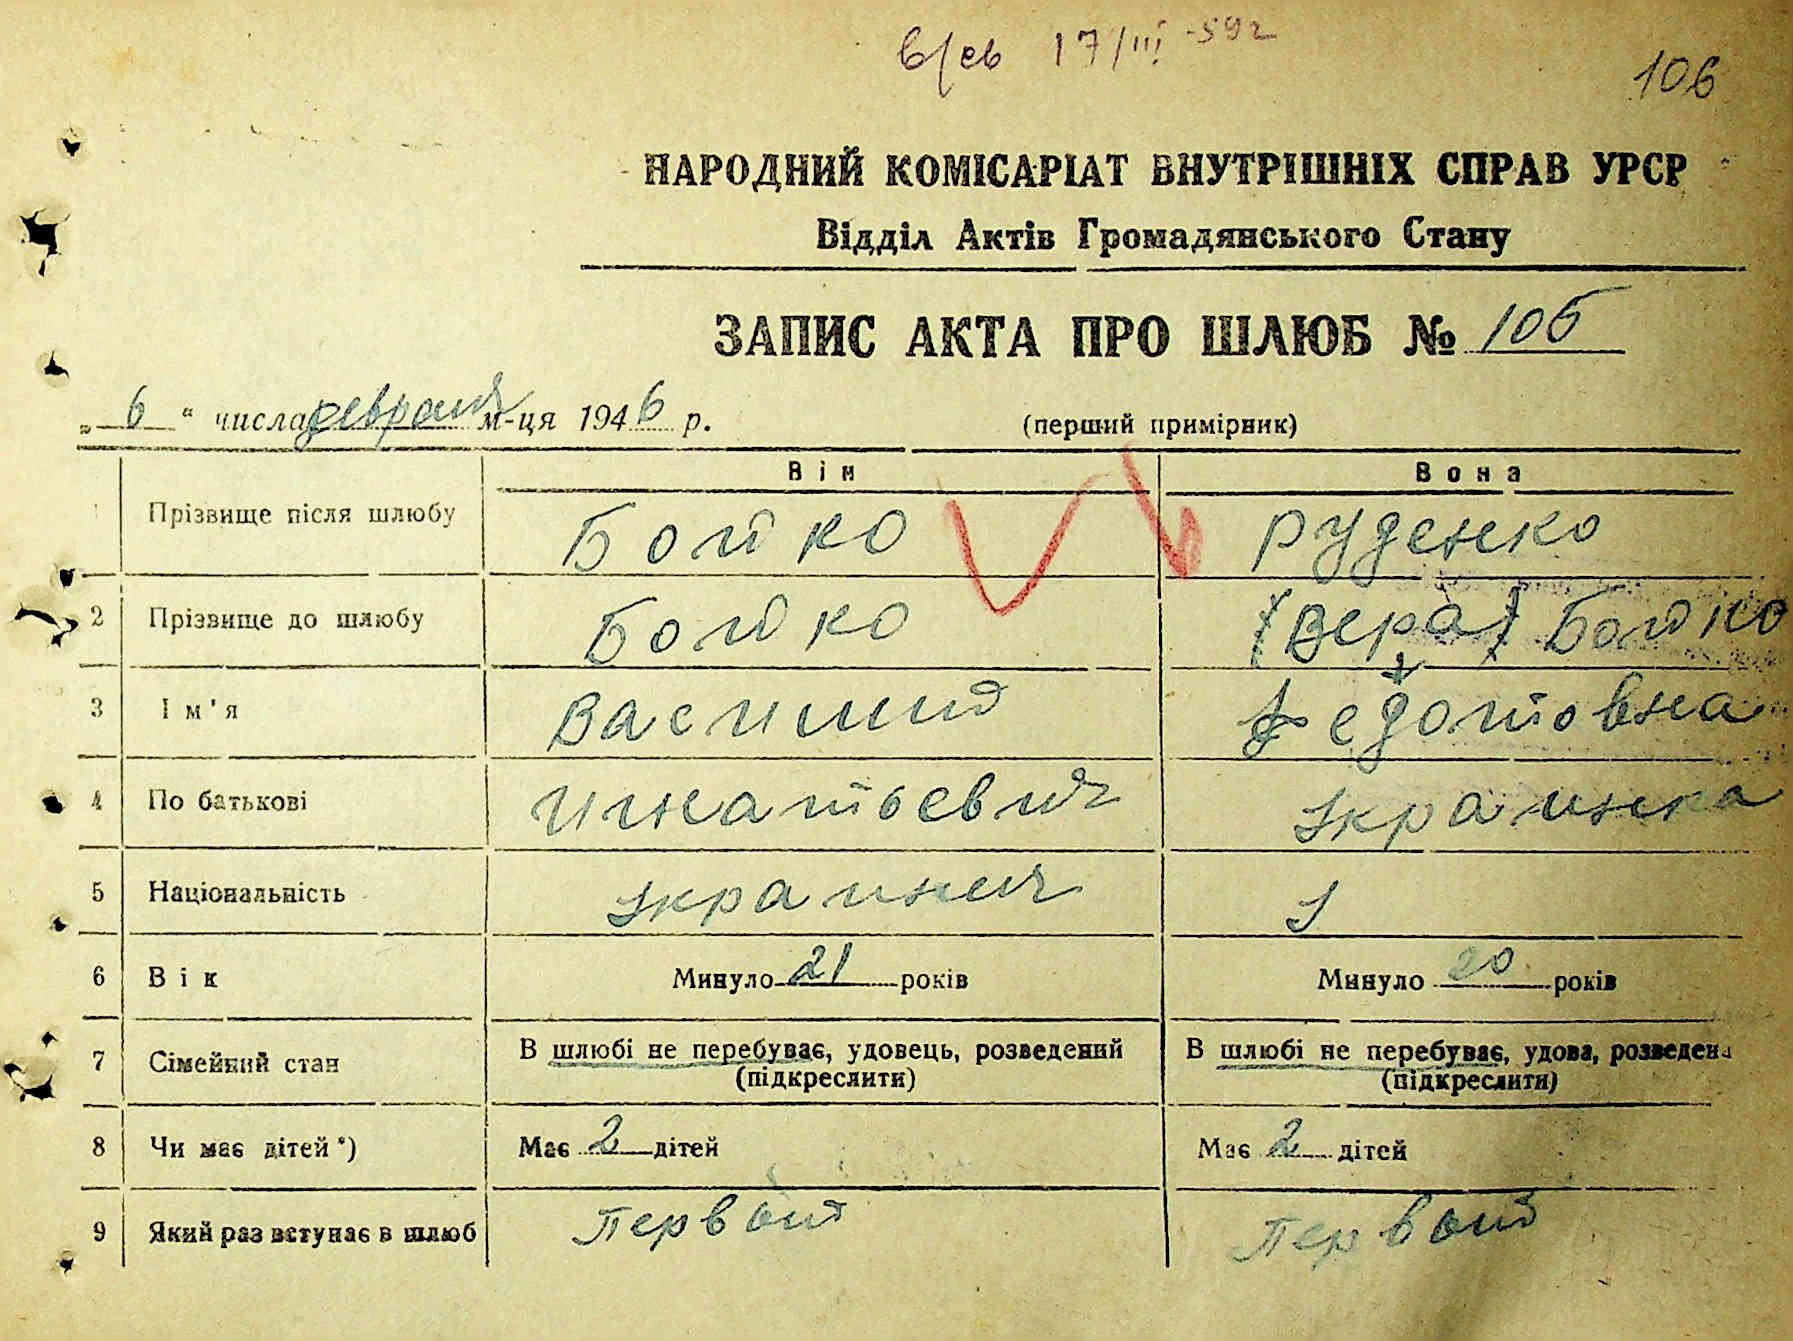 в/св 17/III-59г
106
НАРОДНИЙ КОМІСАРІАТ ВНУТРІШНІХ СПРАВ УРСР
Відділ Актів Громадянського Стану
ЗАПИС АКТА ПРО ШЛЮБ № 105
„6“ числа февраля м-ця 1946 р. (перший примірник)
Він Вона
1 Прізвище після шлюбу Бойко Руденко
2 Прізвище до шлюбу Бойко (Вера) Бойко
3 Ім'я Василий Федотовна
4 По батькові Игнатьевич украинка
5 Національність украинец У
6 Вік Минуло 21 років Минуло 20 років
7 Сімейний стан В шлюбі не перебуває, удовець, розведений (підкреслити) В шлюбі не перебуває, удова, розведена (підкреслити)
8 Чи має дітей *) Має 2 дітей Має 2 дітей
9 Який раз вступає в шлюб Первый Первый